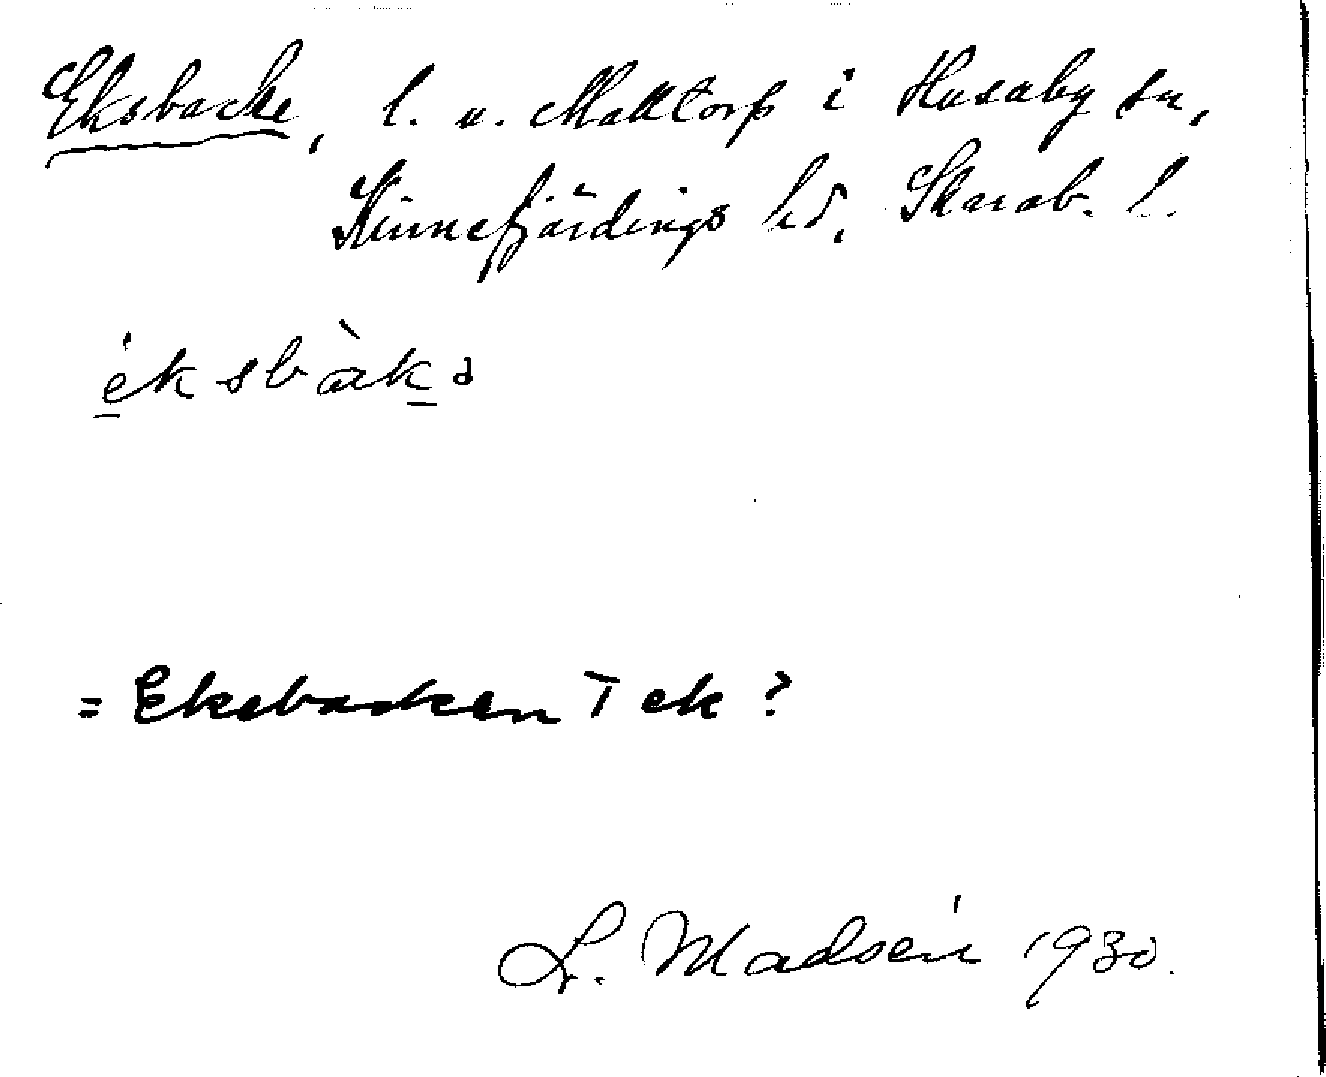 Eksbacke, l. u. Malltorp i Husaby sn,
Kinnefjärdings hd, Skarab. l.
éksbàkə
= Eksbacken T ek ?
L. Madsén 1930.